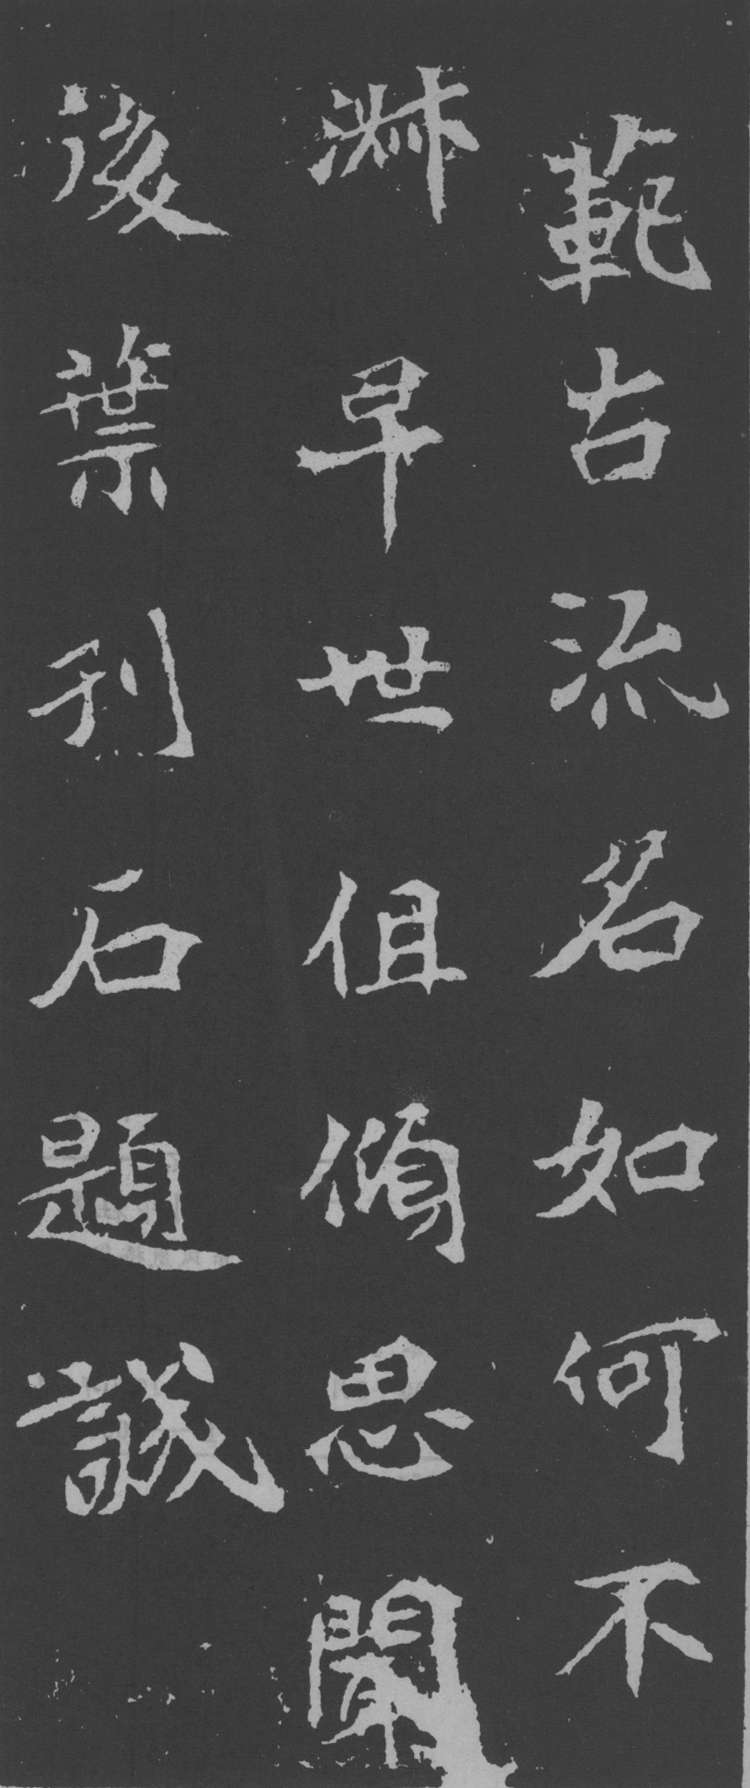 範古流名如何不
淑早世徂傾思聞
後葉刊石題誠